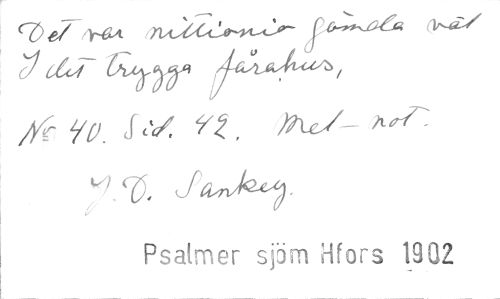 Det var nittionio gömda väl
I det trygga fårahus,
No 40. Sid. 42. Mel-not.
J. D. Sankey.
Psalmer sjöm Hfors 1902